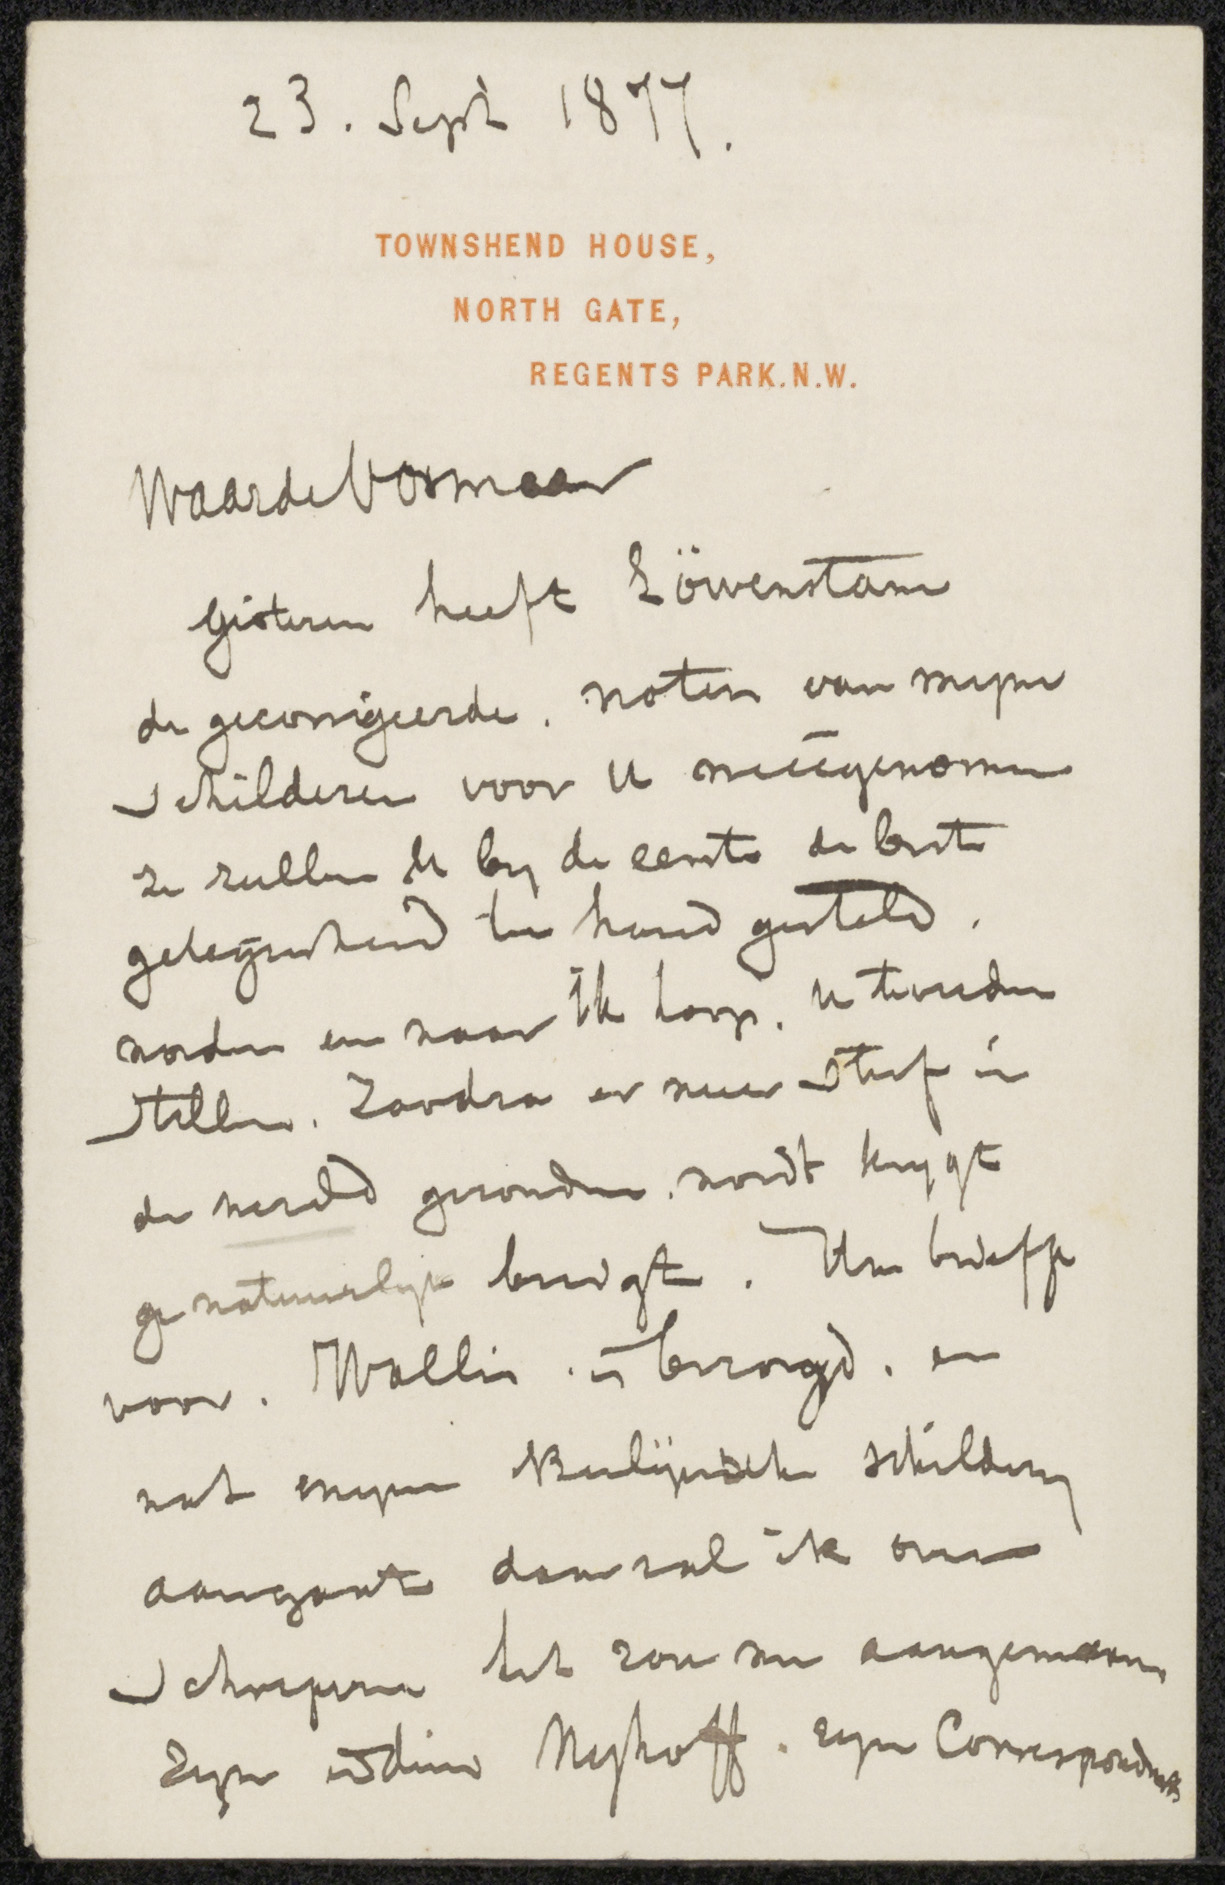 23. Sept 1877.
TOWNSHEND HOUSE,
NORTH GATE,
REGENTS PARK. N.W.
Waarde Vosmaer
Gisteren heeft Löwenstam
de gecorrigeerde. noten van mijne
schilderen voor U meegenomen
ze zullen U by de eerste de beste
gelegenheid ter hand gesteld.
worden en naar ik hoop. U tevreden
stellen. Zoodra er meer stof in
de wereld gevonden. wordt krygt
ge natuurlyk berigt. Uw briefje
voor. Wallis. is bezorgd. en
wat myne Berlijnsche schildery
aangaat daar zal ik over
schrijven het zou me aangenaam
zyn indien Nyhoff. zyn Correspondent